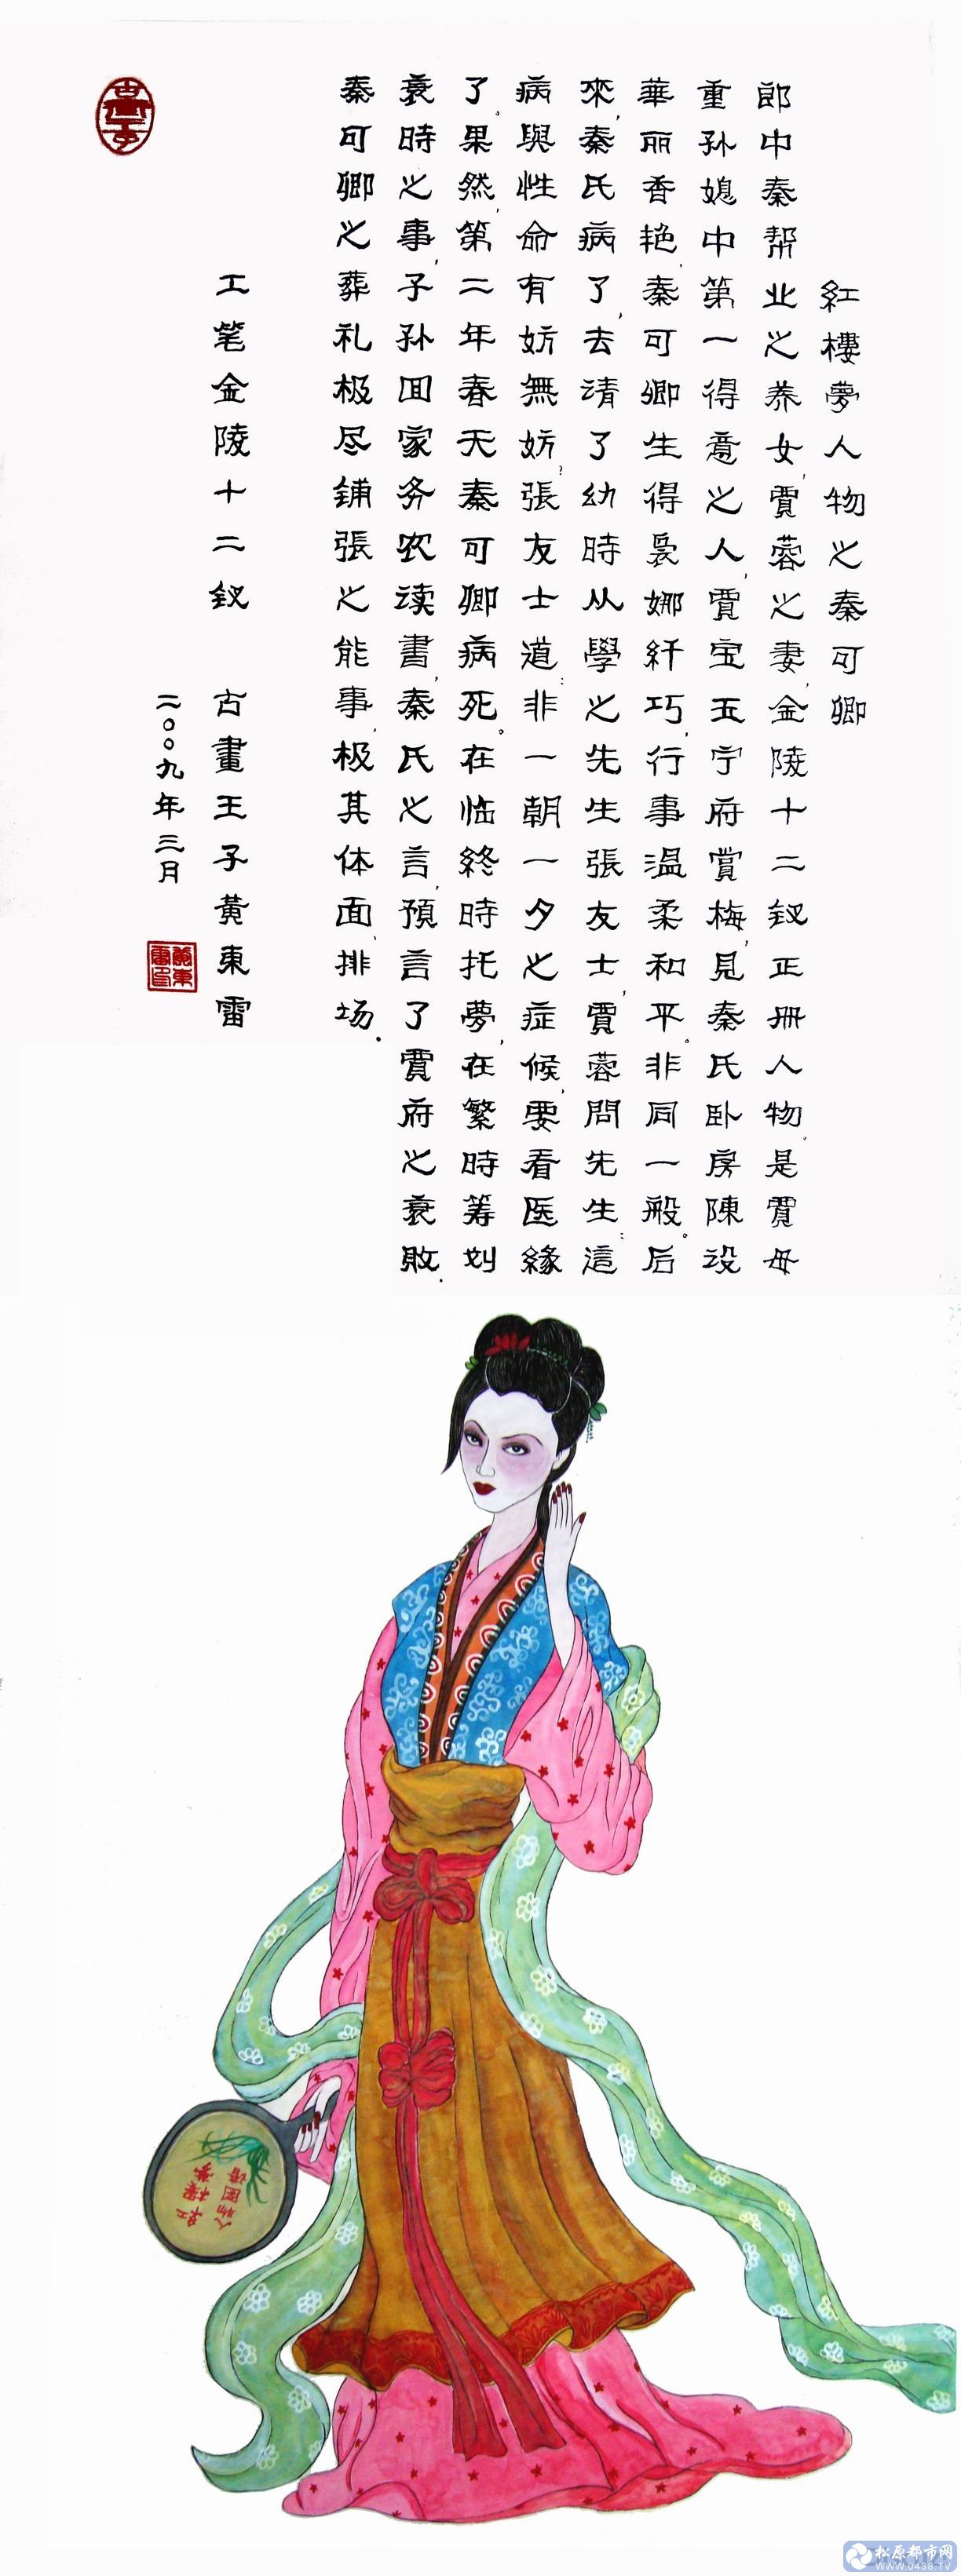 紅樓夢人物之秦可卿
郎中秦帮业之养女,賈蓉之妻,金陵十二釵正册人物。是賈母
重孙媳中第一得意之人,賈宝玉宁府賞梅,見秦氏卧房陳设
華丽香艳,秦可卿生得袅娜纤巧,行事温柔和平。非同一般。后
來,秦氏病了,去清了幼時从學之先生張友士,賈蓉問先生:這
病與性命有妨無妨?張友士道:非一朝一夕之症候,要看医緣
了。果然,第二年春天秦可卿病死。在临終時托夢,在繁時筹划
衰時之事,子孙囬家务农读書,秦氏之言,預言了賈府之衰敗.
秦可卿之葬礼极尽鋪張之能事,极其体面、排场.
工笔金陵十二釵 古畫王子黄東雷
二〇〇九年三月
黄東雷印
紅樓夢
人物图谱
松原都市网
WWW.0438.TV